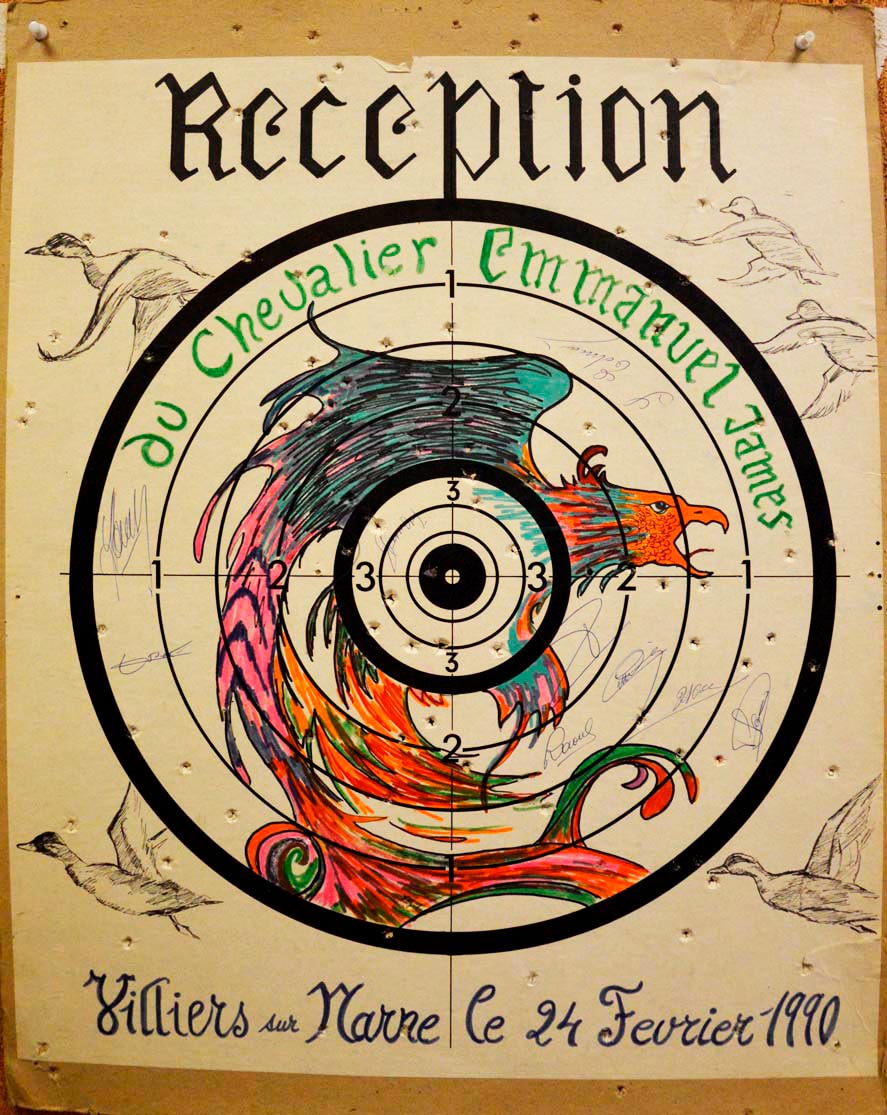 Reception
du Chevalier Emmanuel Jamas
1
2
3
1 2 3 3 2 1
3
2
Raoul
1
Villiers sur Marne le 24 Fevrier 1990